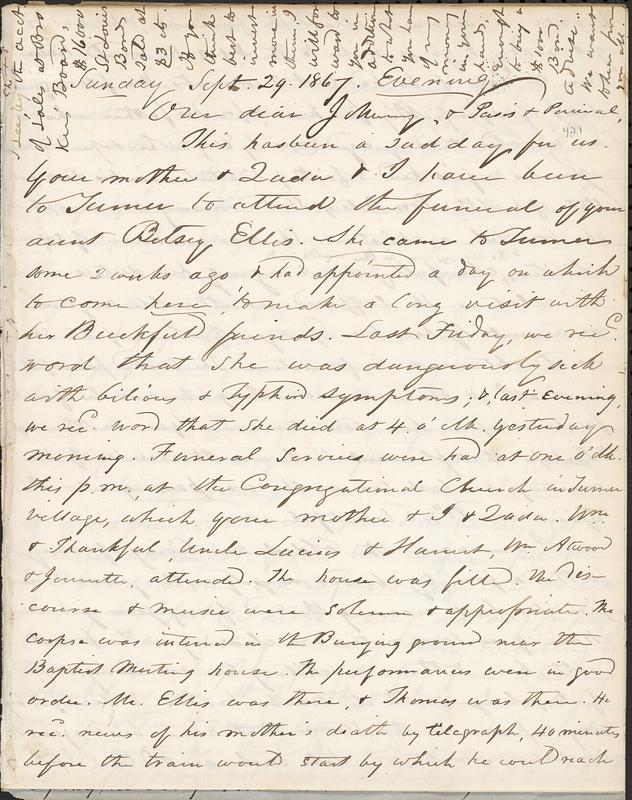 Sunday Sept. 29. 1867. Evening.
Our dear Johnny, & Persis & Percival,
This has been a sad day for us.
Your mother & Zada & I have been
to Turner to attend the funeral of your
aunt Betsey Ellis. She came to Turner
some 2 weeks ago & had appointed a day on which
to come here, to make a long visit with
her Buckfield friends. Last Friday, we recd.
word that she was dangerously sick
with bilious & typhoid symptoms; & last evening,
we recd. word that she died at 4. o'clk. yesterday
morning. Funeral services were had at one o'clk.
this p.m., at the Congregational Church in Turner
village, which your mother & I & Zada. Wm.
& Thankful, Uncle Lucius & Harriet, Wm Atwood
& Jennette, attended. The house was filled. The dis-
course & music were solemn & appropriate. The
corpse was interred in the Burying ground near the
Baptist Meeting house. The performances were in good
order. Mr. Ellis was there, & Thomas was there. He
recd. news of his mother's death by telegraph, 40 minutes
before the train would start by which he could reach
of sales at Bro
kers' Board,
$16000
St Louis
Bond
sold at
83 cts.
If you
think
best to
invest
more in
them, I
will for
ward to
you in
addition
to what
you have
of my
in your
hands,
enough
to buy a
$1000
Bond.
advise.
We want
from
you all